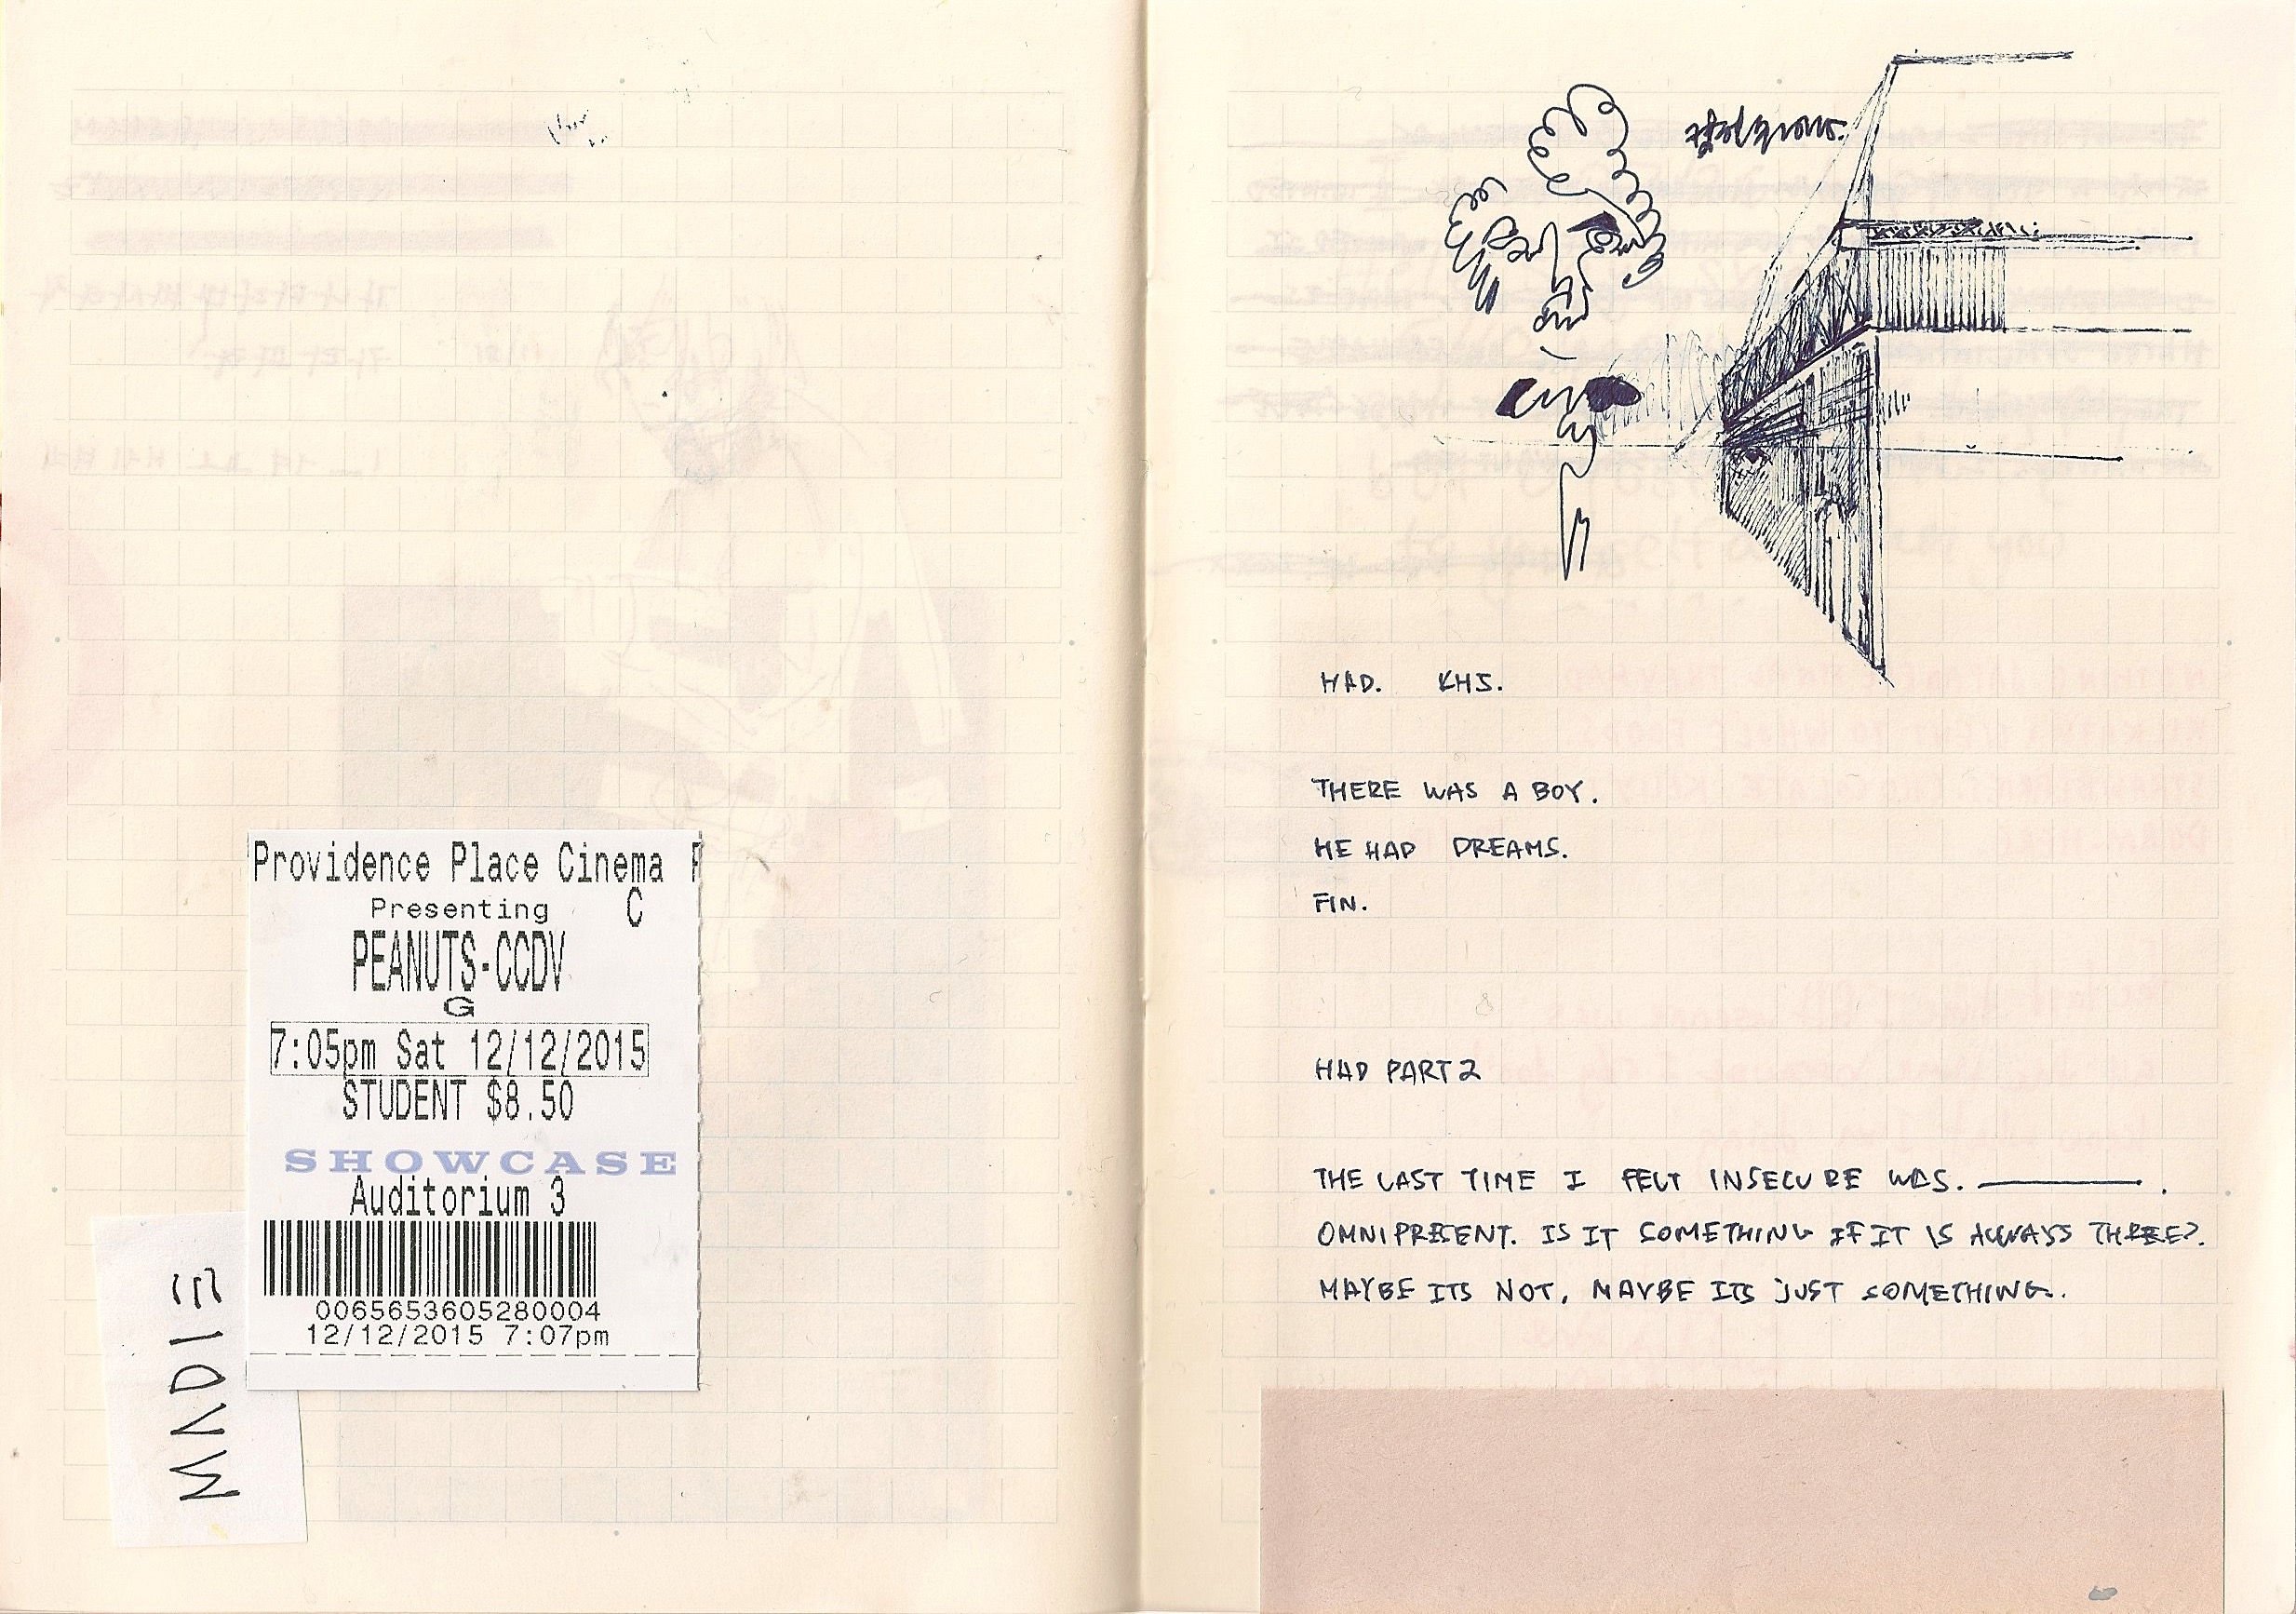 Providence Place Cinema
C
Presenting
PEANUTS-CCDV
G
7:05pm Sat 12/12/2015
STUDENT $8.50
SHOWCASE
Auditorium 3
0065653605280004
12/12/2015 7:07pm
MADIE
HAD. KHJ.
THERE WAS A BOY.
HE HAD DREAMS.
FIN.
HAD PART 2
THE LAST TIME I FELT INSECURE WAS. ________ .
OMNIPRESENT. IS IT SOMETHING IF IT IS ALWAYS THERE?
MAYBE ITS NOT, MAYBE ITS JUST SOMETHING.